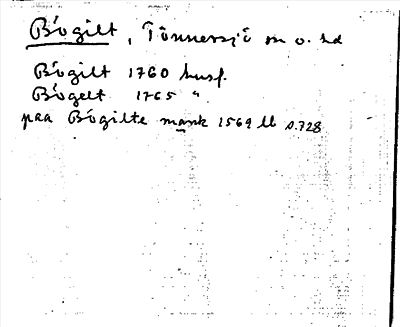 Bögilt, Tönnersjö sn o. hd
Bögilt 1760 husf.
Bögelt 1765 "
paa Bögilte mark 1569 ll s.728